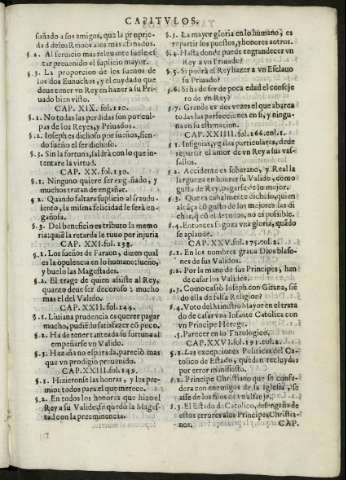 CAPITVLOS.
sañado a sos amigos, que la propieda
d de los Reinados a los mas criados.
§.2. Al seruicio mas el
tar preuenido el supicio mayor.
§.3. La proporcion de los sueños de
los dos Eunuchos, y el cuydado que
deue tener vn Rey en hazer a su Pri
uado bien visto.
CAP. XIX. fol.120.
§.1. No todas las perdidas son por cul
pas de los Reyes, y Priuados.
§.2. Ioseph es dichoso por sueños, sien-
do sueño el ser dichoso.
§.3. Sin la fortuna, saldrà con lo que in-
tentare la virtud.
CAP. XX. fol.130.
§.1. Ninguno quiere ser engañado, y
muchos tratan de engañar.
§.2. Quando faltare suplicio al fraudu-
lento, la misma felicidad le serà en
gañosa.
§.3. Del beneficio es tributo la memo
ria, aquiè la retarda le tuuo por injuria
CAP. XXI. fol.138.
§.1. Los sueños de Faraon, dizen qual
es la opulencia en lo humano: sueño,
y buelo las Magestades.
§.2. El trage de quien assiste al Rey,
quanto deue ser decoroso: y mucho
mas el del Valido.
CAP. XXII. fol.144.
§.1. Liuiana prudencia es querer pagar
mucho, pudiendo satisfazer cõ poco.
§.2. Ha de tener atencada su fortuna al
empeñarse vn Valido.
§.3. Hazaña no esperada, pareciò mas
que vn prodigio preuenido.
CAP. XXIII. fol.149.
§.1. Hizieronse las honras, y los pre-
mios: todos para el que merece.
§.2. En todos los honores que hizo el
Rey a su Valido, se quedò la Mages-
tad con la preeminencia.
§.3. La mayor gloria en lo humano, es
repartir los puestos, y honores a otros.
§.4. Hasta donde puede engrandecer vn
Rey a vn Priuado?
§.5. Si podrà el Rey hazer a vn Esclauo
su Priuado?
§.6. Si ha de ser de poca edad el conseje
ro de vn Rey?
§.7. Grande es dos vezes el que abarca
todas las perfecciones en si, y ningu-
na en su estimacion.
CAP. XXIIII. fol.166. col.1.
§.1. Insignias, y galas particulares, deue
repartir el amor de vn Rey a sus vas-
sallos.
§.2. Accidente es soberano, y Real la
largueza en honrar su Valido, como
gusta de Rey, pagarse de lo mejor.
§.3. Que es caualmente dichoso, quien
alcança lo gustos de los mejores las di
chas, q cõ el se vnio, no es possible.
§.4. Entonces se goza vna gloria, quado
se aplaude.
CAP. XXV. fol.175. col.2.
§.1. En los nombres graua Dios blaso-
nes de sus Validos.
§.2. Por la mano de sus Principes, han
de casar los Validos.
§.3. Como casò Ioseph con Gitana, siẽ
do ella de Religion falsa?
§.4. Voto del Ministro Mayor en el trata
do de casar vna Infanta Catolica con
vn Principe Herege.
§.5. Parecer en lo Teologico.
CAP. XXVI. fol.191. col.2.
§.1. Las excepciones Politicas del Ca-
tolico de Estado, quedan excluydas
por error manifiesto.
§.2. Principe Christiano que se confe-
dera con enemigos de su Iglesia, se
asse de los filos de su espada.
§.3. El Estado de Catolico, desengaña de
estos errores a los Principes Christia-
nos.
CAP.